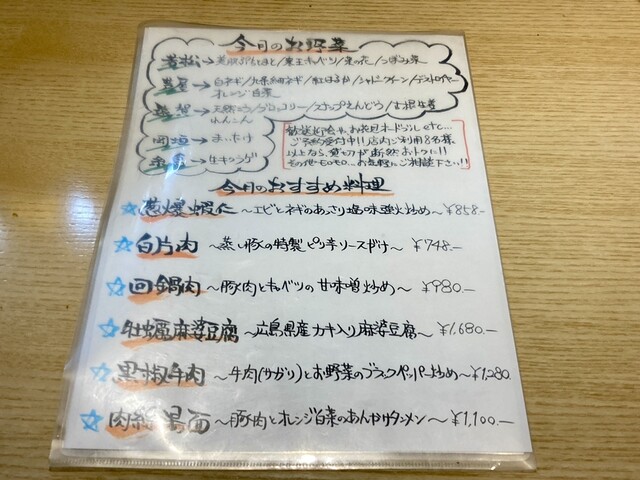 今月のお野菜
若松→若松ぷちとまと/東王キャベツ/菜の花/つぼみ菜
白ネギ/九条細ネギ/紅はるか/シャドークイーン/デストロイヤー
オレンジ白菜
→天然ぶり/ブロッコリー/スナップえんどう/お根生姜
れんこん
岡垣→まいたけ
→生キクラゲ
歓送迎会や、お花見オードブルetc…
ご予約受付中!!店内ご利用8名様
以上なら、貸切が断然おトク!!
その他モロモロ…お気軽にご相談下さい!!
今月のおすすめ料理
☆葱爆蝦仁 〜エビとネギのあっさり塩味強火炒め〜 ¥858.-
☆白片肉 〜蒸し豚の特製ピリ辛ソースがけ〜 ¥748.-
☆回鍋肉 〜豚肉とキャベツの甘味噌炒め〜 ¥980.-
☆牡蠣麻婆豆腐 〜広島県産カキ入り麻婆豆腐〜 ¥1,680.-
☆黒椒牛肉 〜牛肉(サガリ)とお野菜のブラックペッパー炒め〜 ¥1,280.
☆肉絲湯面 〜豚肉とオレンジ白菜のあんかけタンメン〜 ¥1,100.-